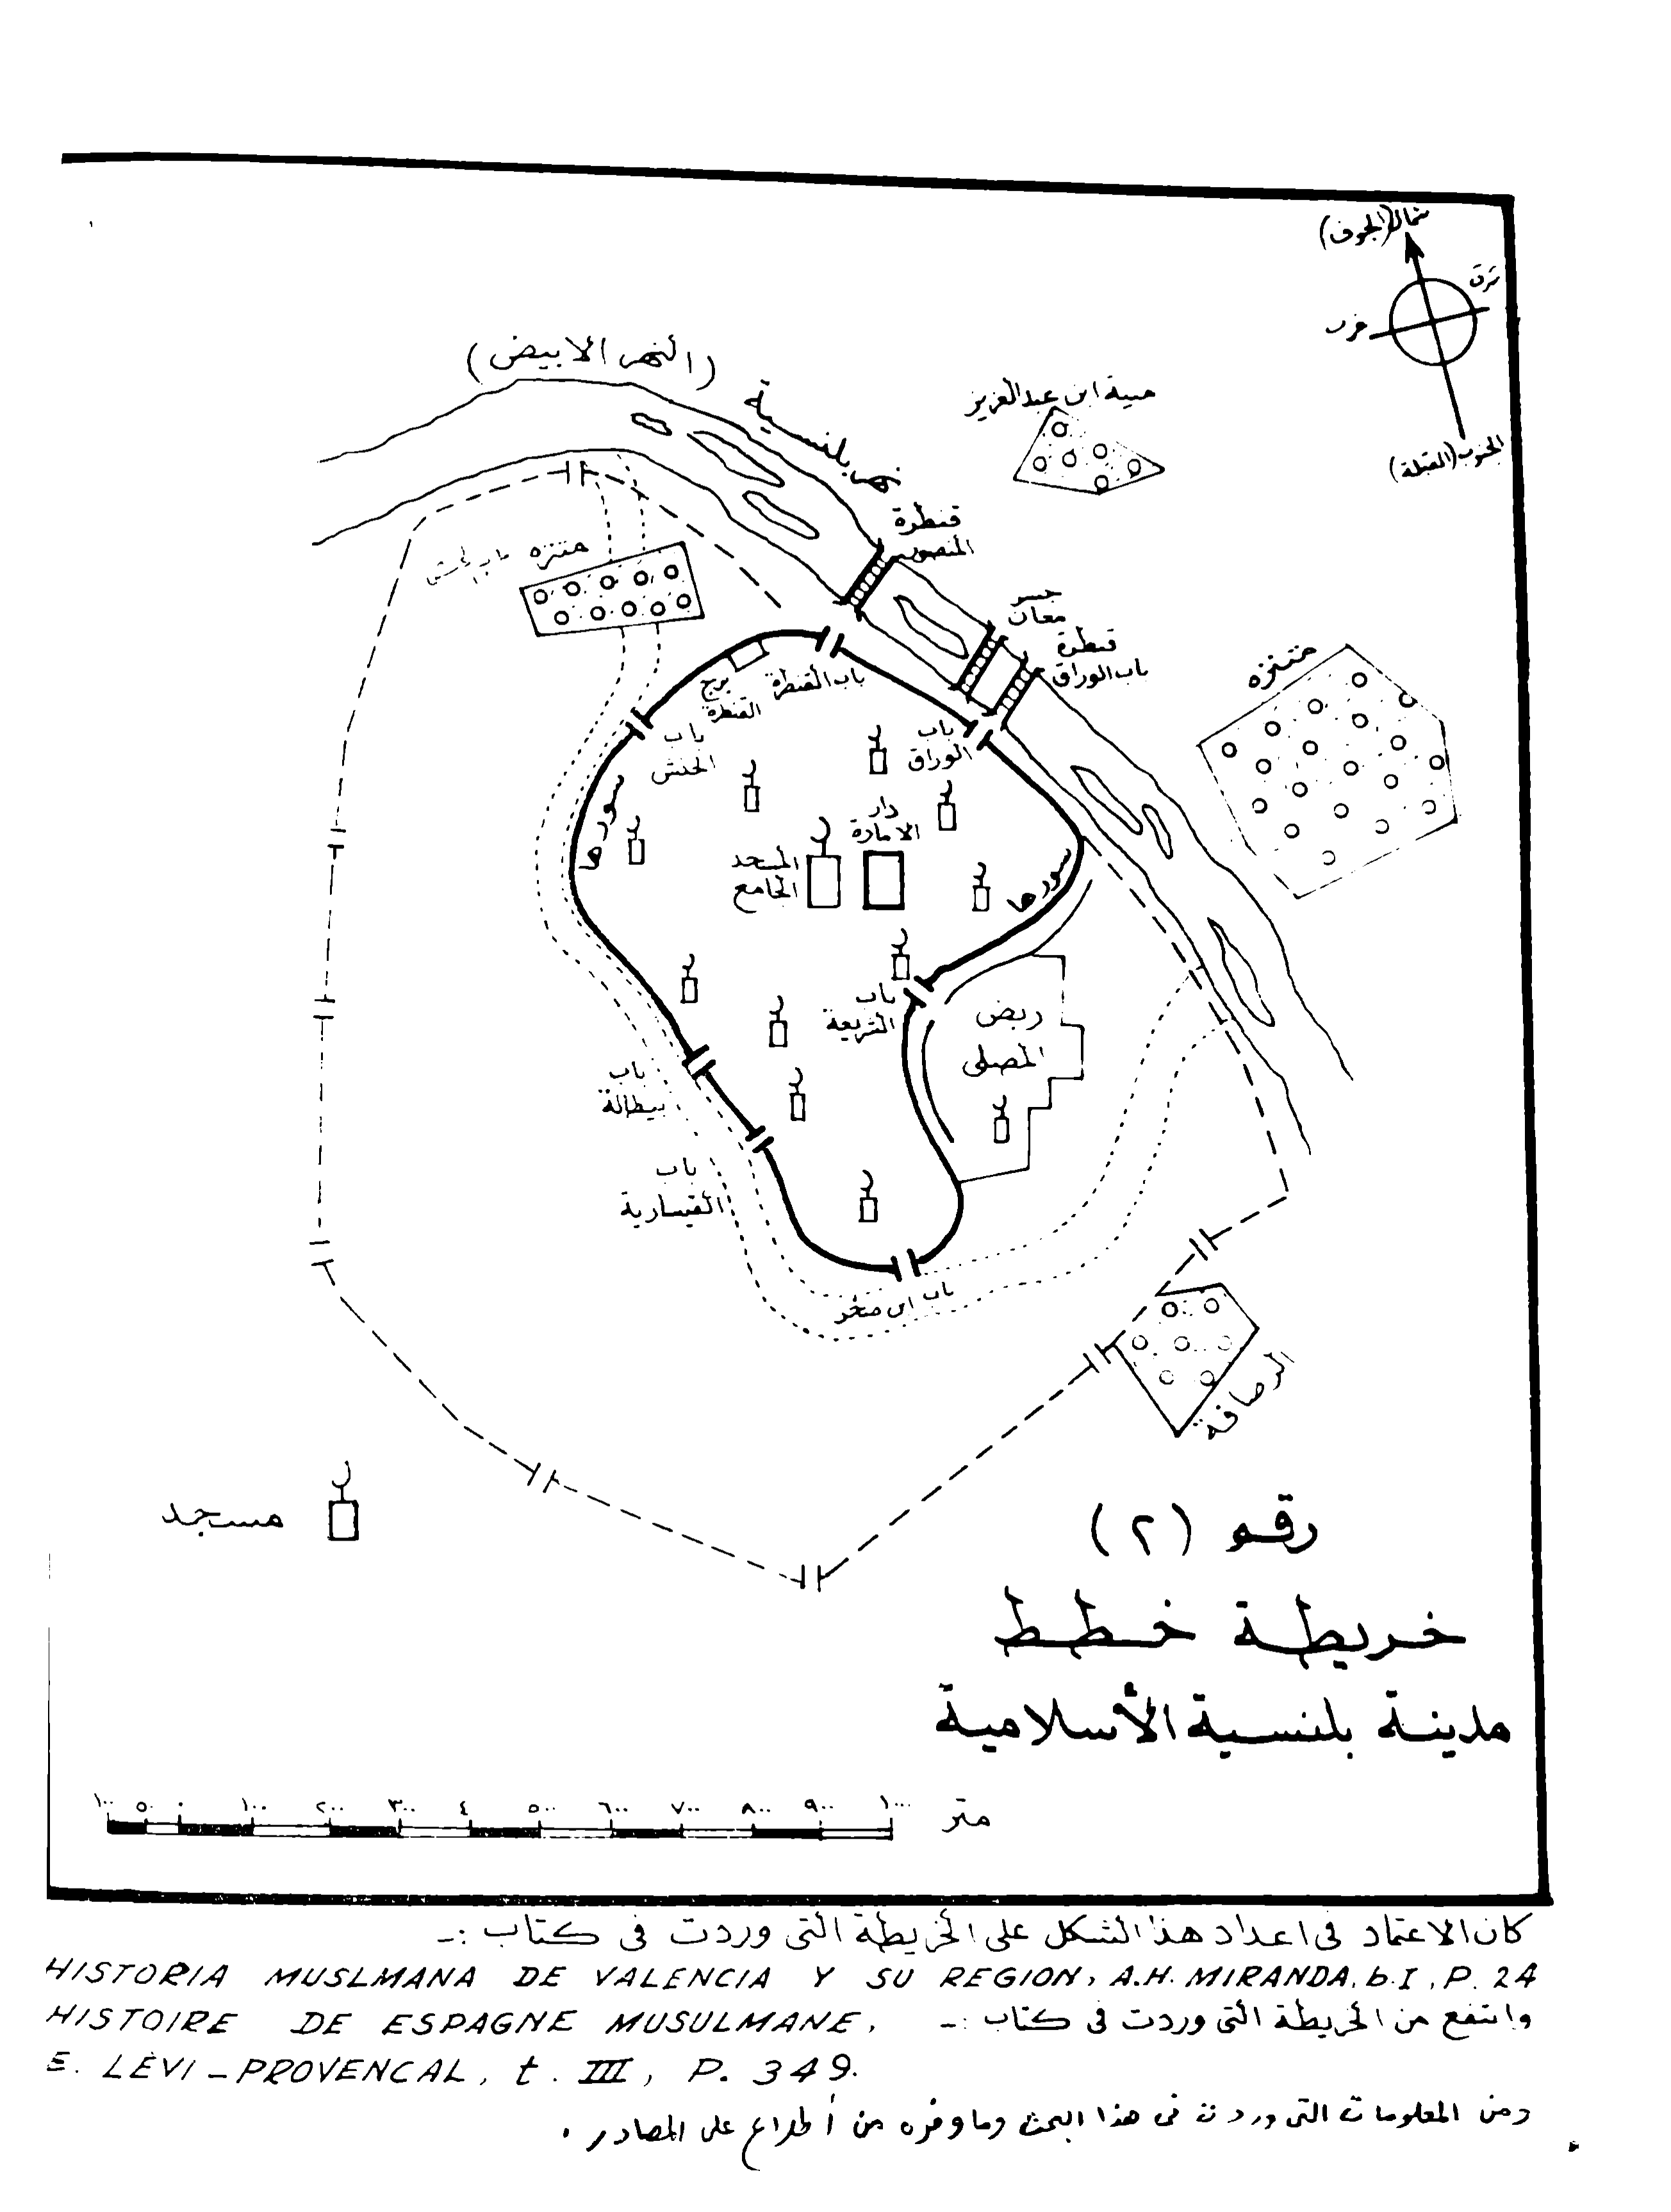 شمال (الجوف)
شرق
غرب
الجنوب (القبلة)
(النهر الابيض)
نهر بلنسية
منية ابن عبد العزيز
قنطرة
المنصور
جسر
معان
قنطرة
باب الوراق
متنزه
متنزه باب الحنش
باب القنطرة
برج
القنطرة
باب
الحنش
باب
الوراق
سورها
دار
الامارة
المسجد
الجامع
سورها
باب
الشريعة
ربض
المصلى
باب
بيطالة
باب
القيسارية
باب ابن صخر
الرصافة
مسجد
رقم (٢)
خريطة خطط
مدينة بلنسية الأسلامية
١٠٠ ٥٠ ٠ ١٠٠ ٢٠٠ ٣٠٠ ٤ ٥٠٠ ٦٠٠ ٧٠٠ ٨٠٠ ٩٠٠ ١٠٠٠ متر
كان الاعتماد فى اعداد هذا الشكل على الخريطة التى وردت فى كتاب :ـ
HISTORIA MUSLMANA DE VALENCIA Y SU REGION, A.H. MIRANDA. b.I, P. 24
وانتفع من الخريطة التى وردت فى كتاب :ـ HISTOIRE DE ESPAGNE MUSULMANE,
E. LÉVI-PROVENCAL, t. III, P. 349.
ومن المعلومات التى وردت فى هذا البحث وما وفره من أطلاع على المصادر .